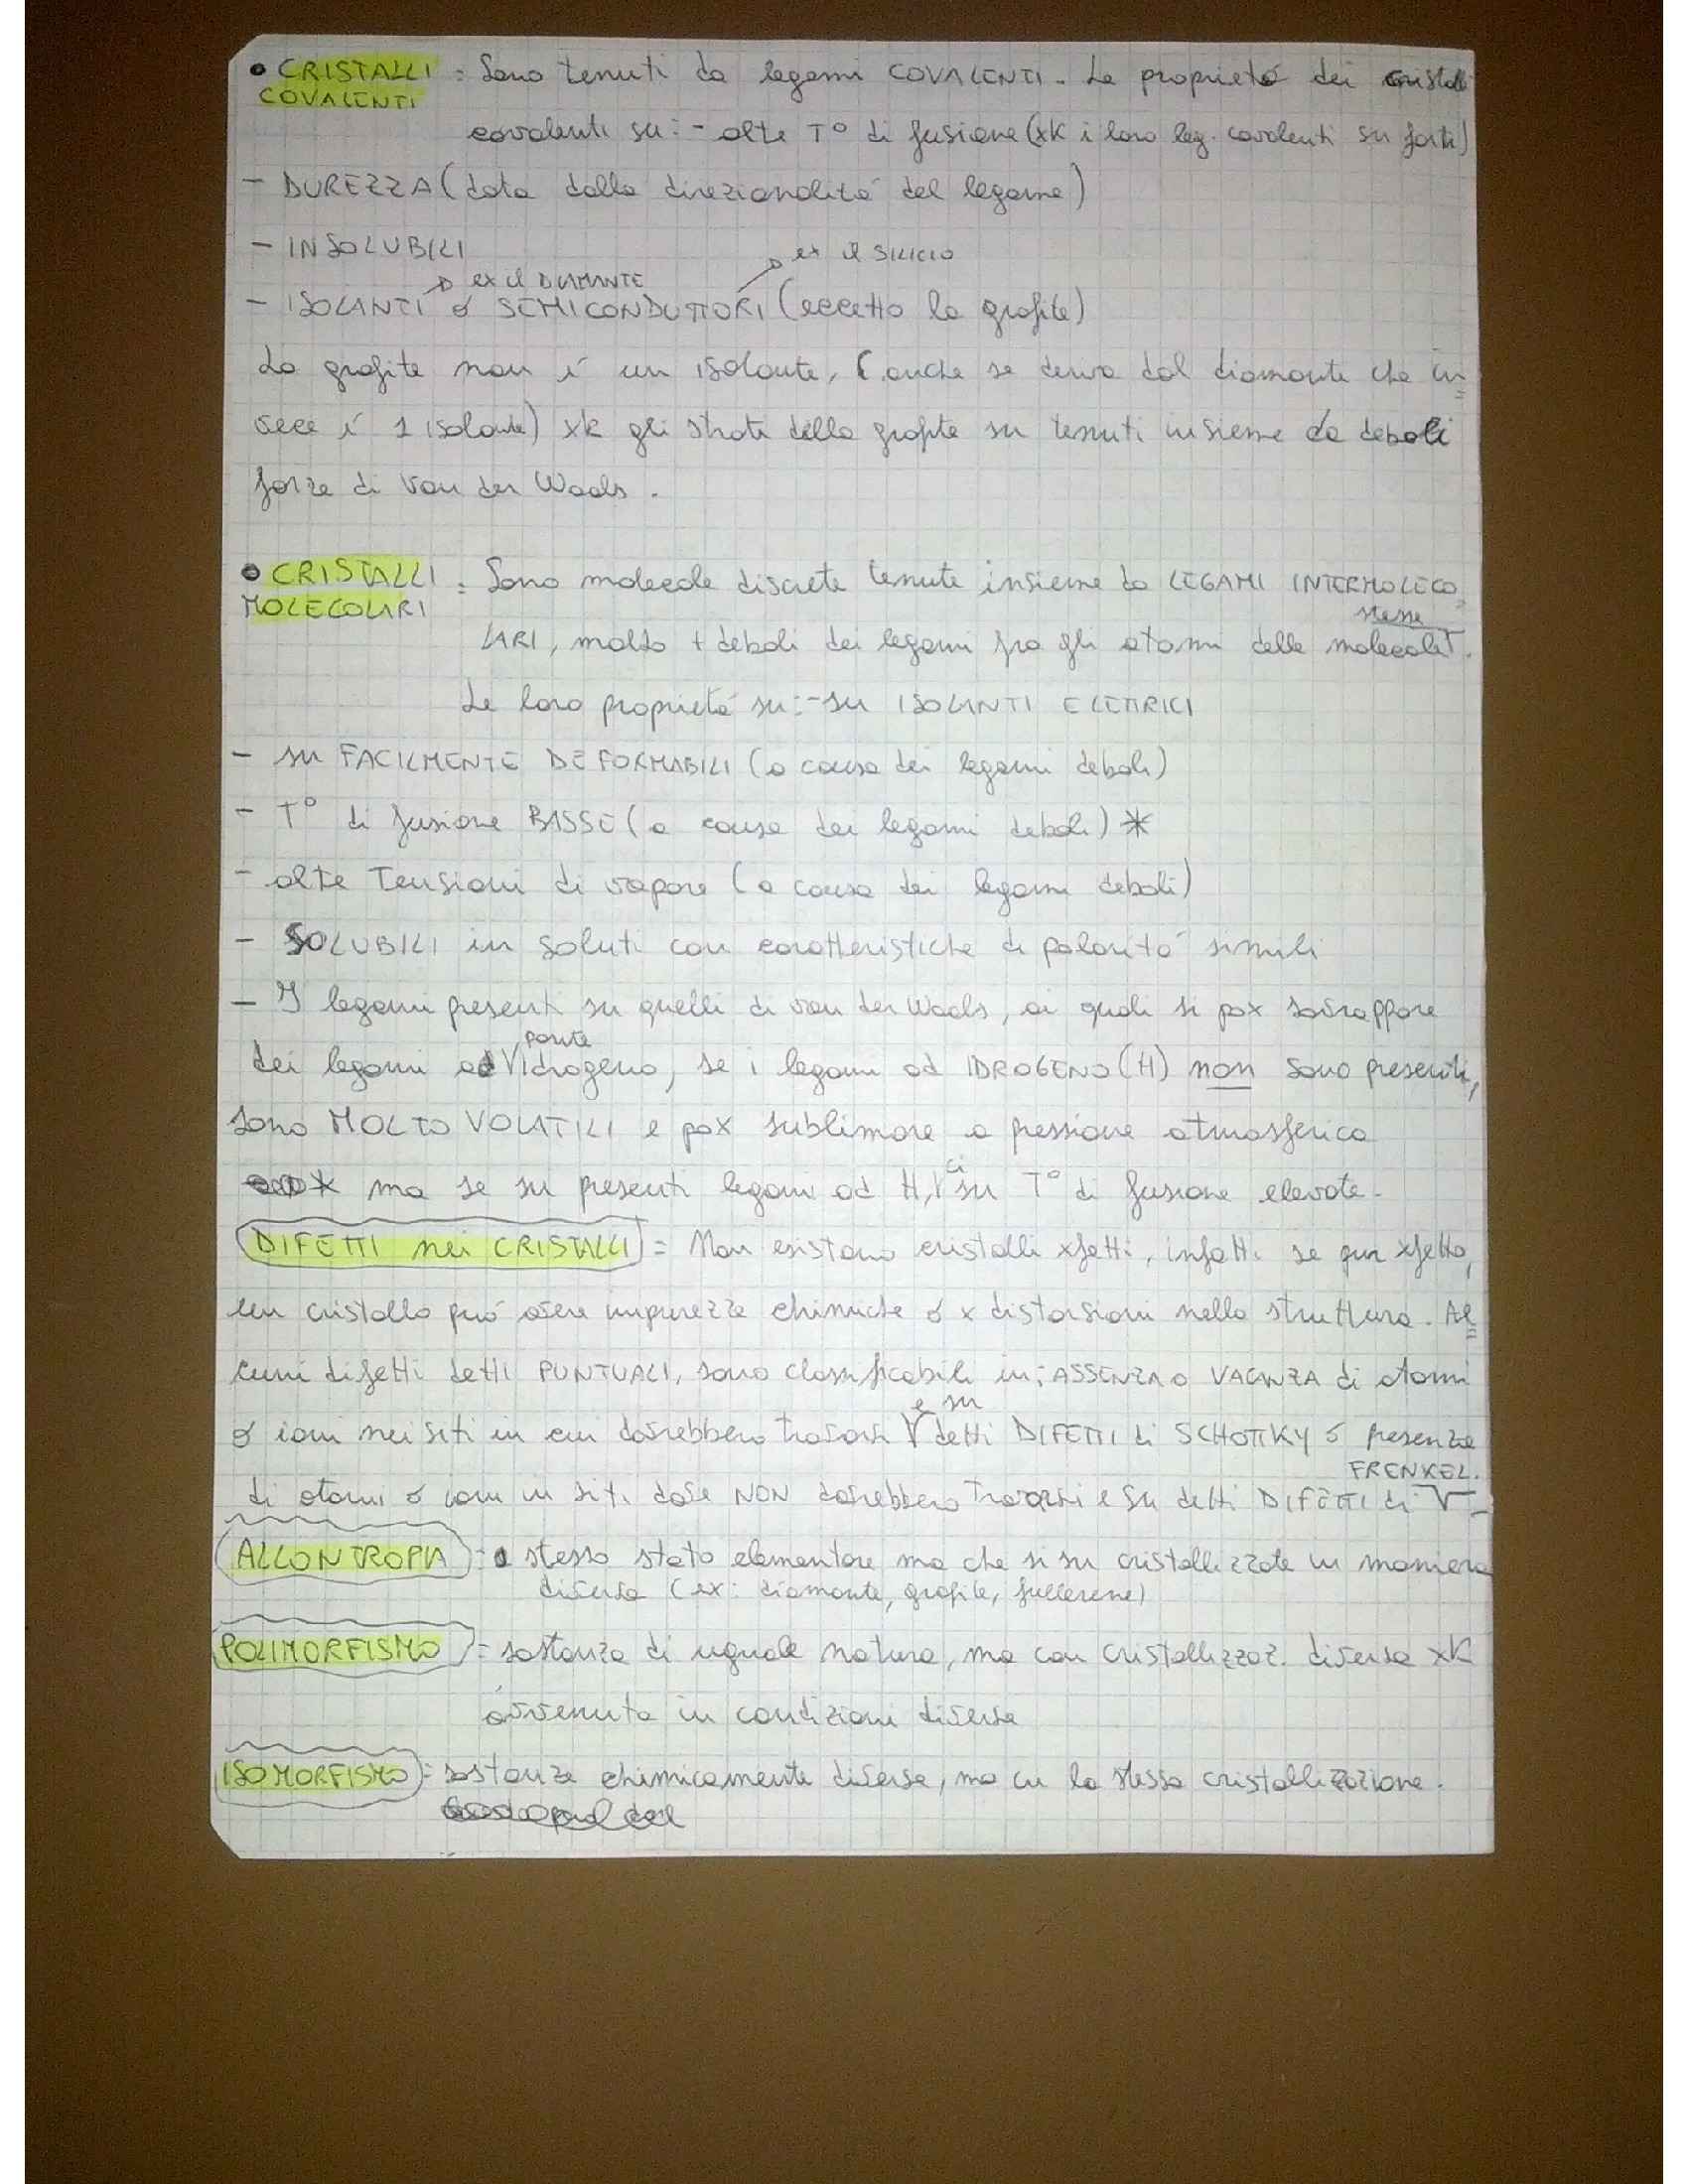 • CRISTALLI COVALENTI = Sono tenuti da legami COVALENTI. Le proprietá dei cristalli
covalenti su: - alte T° di fusione (xk i loro leg. covalenti su forti)
- DUREZZA (data dalla direzionalitá del legame)
- INSOLUBILI
ex il DIAMANTE ex il SILICIO
- ISOLANTI o SEMICONDUTTORI (eccetto la grafite)
La grafite non é un isolante, (anche se deriva dal diamante che in
vece é 1 isolante) xk gli strati della grafite su tenuti insieme da deboli
forze di Van der Waals.
• CRISTALLI MOLECOLARI = Sono molecole discrete tenute insieme da LEGAMI INTERMOLECO
LARI, molto + deboli dei legami fra gli atomi delle molecole stesse.
Le loro proprietá su: - su ISOLANTI ELETTRICI
- su FACILMENTE DEFORMABILI (a causa dei legami deboli)
- T° di fusione BASSE (a causa dei legami deboli) *
- alte Tensioni di vapore (a causa dei legami deboli)
- SOLUBILI in soluti con caratteristiche di polaritá simili
- I legami presenti su quelli di van der Waals, ai quali si pox sovrappore
dei legami ad ponte idrogeno, se i legami ad IDROGENO (H) non sono presenti,
sono MOLTO VOLATILI e pox sublimare a pressione atmosferica
* ma se su presenti legami ad H, ci su T° di fusione elevate.
DIFETTI nei CRISTALLI = Non esistono cristalli xfetti, infatti se pur xfetto,
un cristallo puó avere impurezze chimiche o x distorsioni nella struttura. Al
cuni difetti detti PUNTUALI, sono classificabili in; ASSENZA o VACANZA di atomi
o ioni nei siti in cui dovrebbero trovarsi e su detti DIFETTI di SCHOTTKY o presenza
di atomi o ioni in siti dove NON dovrebbero Trovarsi e su detti DIFETTI di FRENKEL.
ALLONTROPIA = stesso stato elementare ma che si su cristallizzate in maniera
diversa (ex: diamante, grafite, fullerene)
POLIMORFISMO = sostanza di uguale natura, ma con cristallizzaz. diversa xk
avvenuta in condizioni diverse
ISOMORFISMO = sostanze chimicamente diverse, ma cu la stessa cristallizzazione.